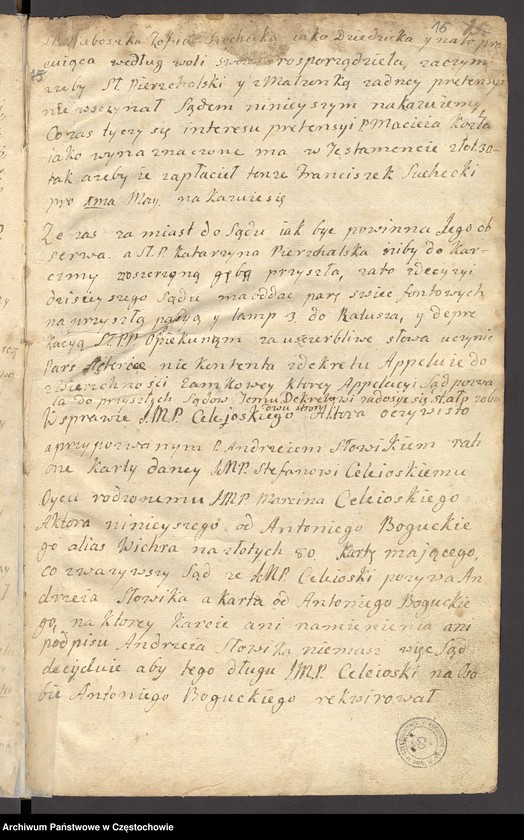 16
Zofia Suchecka iako Dziedzicka y na to pra
cuiąca według woli swoiey rosporządzieła, zaczym
azeby St. Pierzchalski y z Małzonką zadney pretensyi
nie wszczynał Sądem ninieyszym nakazuiemy
Co zas tyczy się interesu pretensyi P. Macieia Kozła
iako wyznaczone ma w Testamencie złot 30
tak azeby ie zapłacieł tenze Franciszek Suchecki
pro 1ma May. nakazuie się
Ze zas zamiast do Sądu iak być powinna Jego ob
serwa. a St. P. Katarzyna Pierzchalska niby do Kar-
czmy roszerzoną gębą przyszła, za to zdecyzyi
dzisieyszego Sądu ma oddać parę swiec fontowych
na przyszłą pasyą y lamp 3. do Ratusza, y depre
kacyą St. PP. Opiekunom za uszczerbliwe słowa uczynic
Pars Actorea nie kontenta z dekretu Appeluie do
Zwierzchności Zamkowey ktorey Appelacyi Sąd pozwa
la do przyszłych Sądow
dwu stron
W sprawie J.M.P. Celejoskiego Aktora oczywisto
a przypozwanym P. Andrzeiem Słowikiem rati
one karty daney J.M.P. Stefanowi Celeioskiemu
Oycu rodzonemu J.M.P. Marcina Celeioskiego
Aktora ninieyszego, od Antoniego Boguckie
go alias Wichra na złotych 80, Kartę maiącego,
co zwazywszy Sąd ze J.M.P. Celeioski pozywa An
drzeia Słowika a Karta od Antoniego Boguckie
go, na ktorey karcie ani namienienia ani
podpisu Andrzeia Słowika niemasz więc Sąd
decyduie aby tego długu J.M.P. Celeioski na Oso
bie Antoniego Boguckiego rekwirował
Archiwum Państwowe w Częstochowie